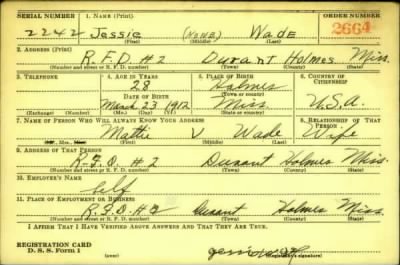 SERIAL NUMBER 1. NAME (Print) ORDER NUMBER
2242 Jessie (None) Wade 2664
(First) (Middle) (Last)
2. ADDRESS (Print)
R.F.D. #2 Durant Holmes Miss.
(Number and street or R. F. D. number) (Town) (County) (State)
3. TELEPHONE 4. AGE IN YEARS 5. PLACE OF BIRTH 6. COUNTRY OF CITIZENSHIP
28 Holmes
DATE OF BIRTH (Town or county)
March 23 1912 Miss. U.S.A.
(Exchange) (Number) (Mo.) (Day) (Yr.) (State or country)
7. NAME OF PERSON WHO WILL ALWAYS KNOW YOUR ADDRESS 8. RELATIONSHIP OF THAT PERSON
Mattie V Wade Wife
(Mr., Mrs., Miss) (First) (Middle) (Last)
9. ADDRESS OF THAT PERSON
R.F.D. #2 Durant Holmes Miss.
(Number and street or R. F. D. number) (Town) (County) (State)
10. EMPLOYER'S NAME
Self
11. PLACE OF EMPLOYMENT OR BUSINESS
R.F.D. #2 Durant Holmes Miss.
(Number and street or R. F. D. number) (Town) (County) (State)
I AFFIRM THAT I HAVE VERIFIED ABOVE ANSWERS AND THAT THEY ARE TRUE.
REGISTRATION CARD
D. S. S. Form 1 (over) (Registrant's signature)